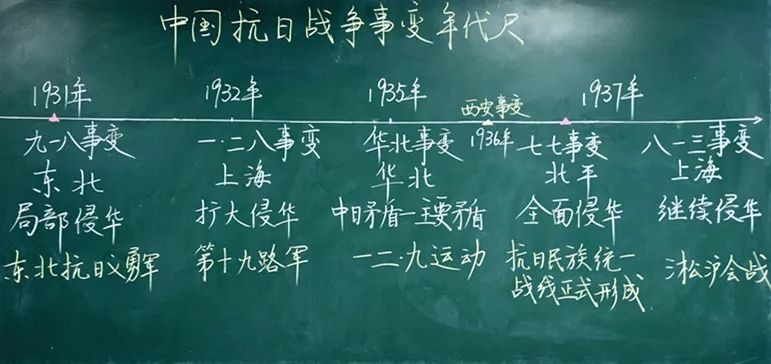 中国抗日战争事变年代尺
1931年 1932年 1935年 西安事变 1937年
1936年
九一八事变 一·二八事变 华北事变 七七事变 八一三事变
东北 上海 华北 北平 上海
局部侵华 扩大侵华 中日矛盾—主要矛盾 全面侵华 继续侵华
东北抗日义勇军 第十九路军 一二·九运动 抗日民族统一 淞沪会战
战线正式形成